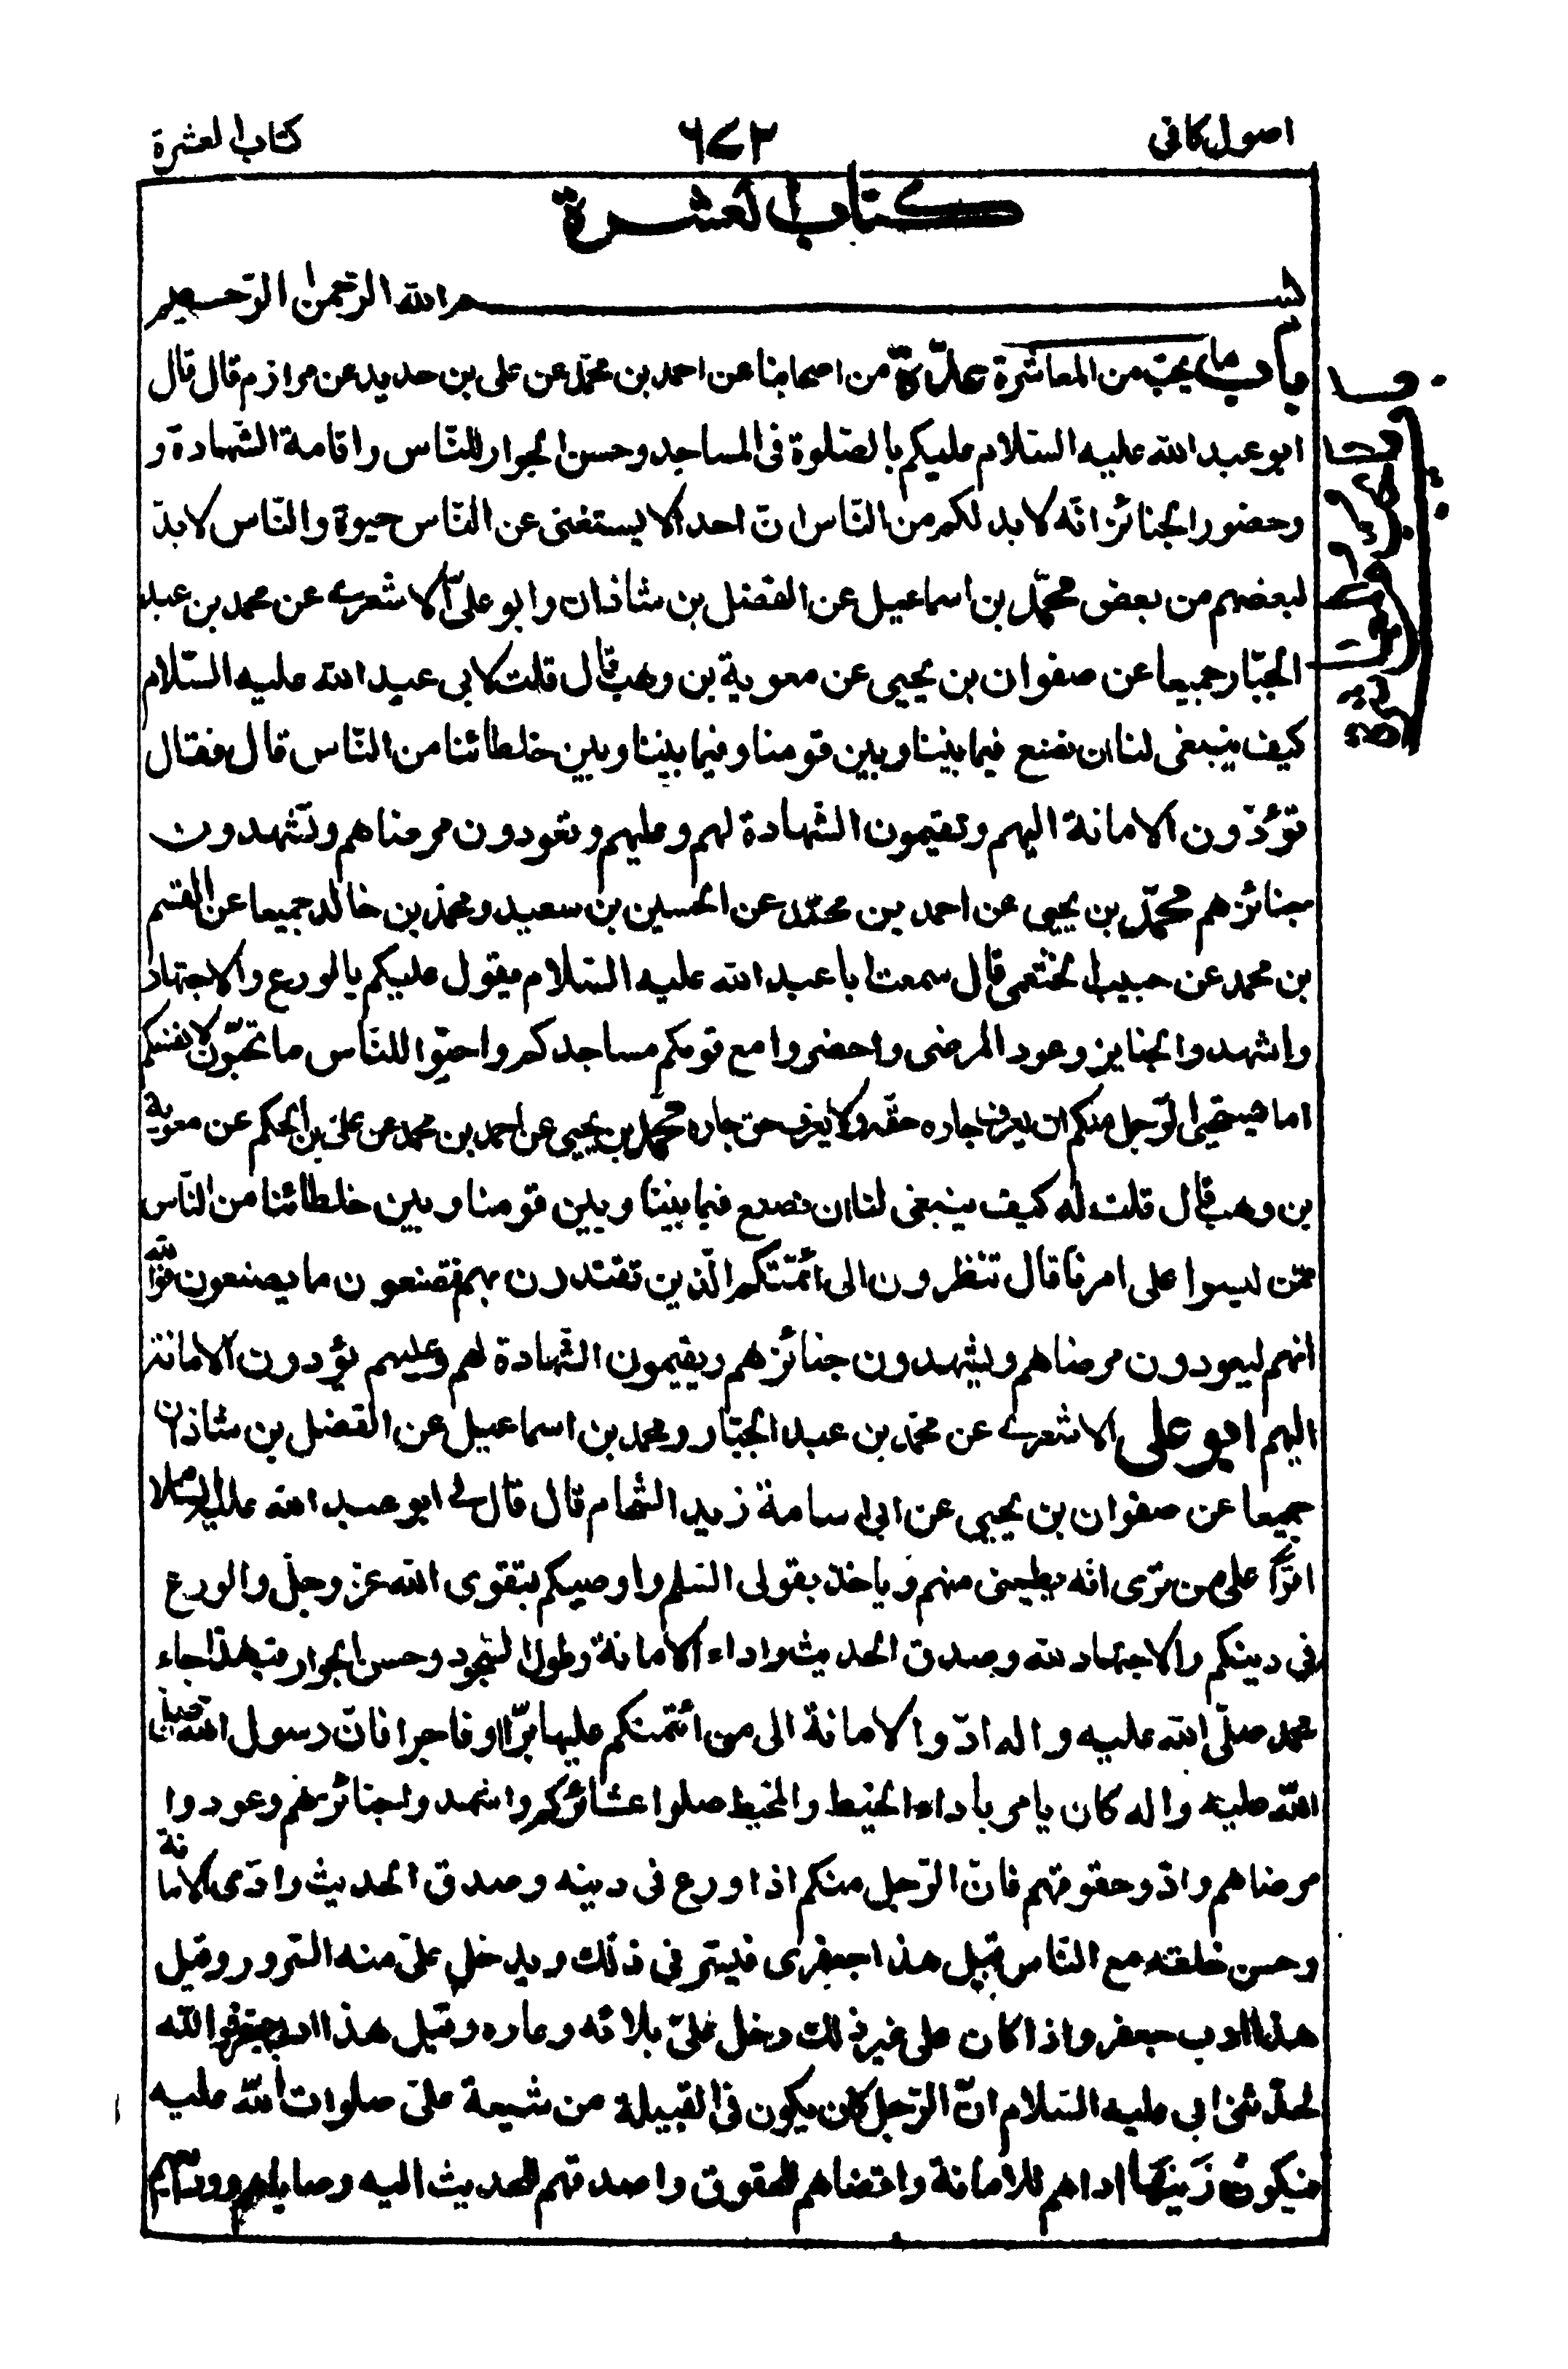 اصول كافى
٦٧٢
كتاب العشرة
كتاب العشرة
بسم الله الرّحمن الرّحيم
باب ما يجب من المعاشرة عدّة من اصحابنا عن احمد بن محمّد عن على بن حديد عن مرازم قال قال
ابو عبد الله عليه السّلام عليكم بالصّلوة فى المساجد وحسن الجوار للنّاس واقامة الشّهادة و
وحضور الجنائز انّه لا بد لكم من النّاس انّ احدا لا يستغنى عن النّاس حيوة والنّاس لا بدّ
لبعضهم من بعض محمّد بن اسماعيل عن الفضل بن شاذان وابو علىّ الاشعرى عن محمد بن عبد
الجبّار جميعا عن صفوان بن يحيى عن معوية بن وهب قال قلت لابى عبد الله عليه السّلام
كيف ينبغى لنا ان نصنع فيما بيننا وبين قومنا وفيما بيننا وبين خلطائنا من النّاس قال فقال
تؤدّون الامانة اليهم وتقيمون الشّهادة لهم وعليهم وتعودون مرضاهم وتشهدون
جنائزهم محمّد بن يحيى عن احمد بن محمّد عن الحسين بن سعيد ومحمّد بن خالد جميعا عن القسم
بن محمد عن حبيب الخثعمى قال سمعت ابا عبد الله عليه السّلام يقول عليكم بالورع والاجتهاد
واشهدوا الجنايز وعودوا المرضى واحضروا مع قومكم مساجدكم واحبّوا للنّاس ما تحبّون لانفسكم
اما يستحيى الرّجل منكم ان يعرف جاره حقّه ولا يعرف حق جاره محمّد بن يحيى عن احمد بن محمد عن علىّ بن الحكم عن معوية
بن وهب قال قلت له كيف ينبغى لنا ان نصنع فيما بيننا وبين قومنا وبين خلطائنا من النّاس
ممّن ليسوا على امرنا قال تنظرون الى ائمّتكم الّذين تقتدون بهم فتصنعون ما يصنعون فوالله
انهم ليعودون مرضاهم ويشهدون جنائزهم ويقيمون الشّهادة لهم وعليهم يؤدون الامانة
اليهم ابو على الاشعرى عن محمّد بن عبد الجبّار ومحمد بن اسماعيل عن الفضل بن شاذان
جميعا عن صفوان بن يحيى عن ابى اسامة زيد الشّحام قال قال لى ابو عبد الله عليه السّلام
اقرأ على من ترى انّه يطيعنى منهم وياخذ بقولى السّلم واوصيكم بتقوى الله عزّ وجلّ والورع
فى دينكم والاجتهاد لله وصدق الحديث واداء الامانة وطول السّجود وحسن الجوار فبهذا جاء
محمد صلّى الله عليه واله ادّوا الامانة الى من ائتمنكم عليها برّا او فاجرا فانّ رسول الله صلّى
الله عليه واله كان يامر باداء الخيط والمخيط صلوا عشائركم واشهدوا جنائزهم وعودوا
مرضاهم وادّوا حقوقهم فانّ الرّجل منكم اذا ورع فى دينه وصدق الحديث وادّى الامانة
وحسن خلقه مع النّاس قيل هذا جعفرى فيسّرنى ذلك ويدخل علىّ منه السّرور وقيل
هذا ادب جعفر واذا كان على غير ذلك دخل علىّ بلائه وعاره وقيل هذا ادب جعفر فوالله
لحدّثنى ابى عليه السّلام انّ الرّجل كان يكون فى القبيلة من شيعة علىّ صلوات الله عليه
فيكون زَينَها اداهم للامانة واقضاهم للحقوق واصدقهم للحديث اليه وصاياهم وودائعهم